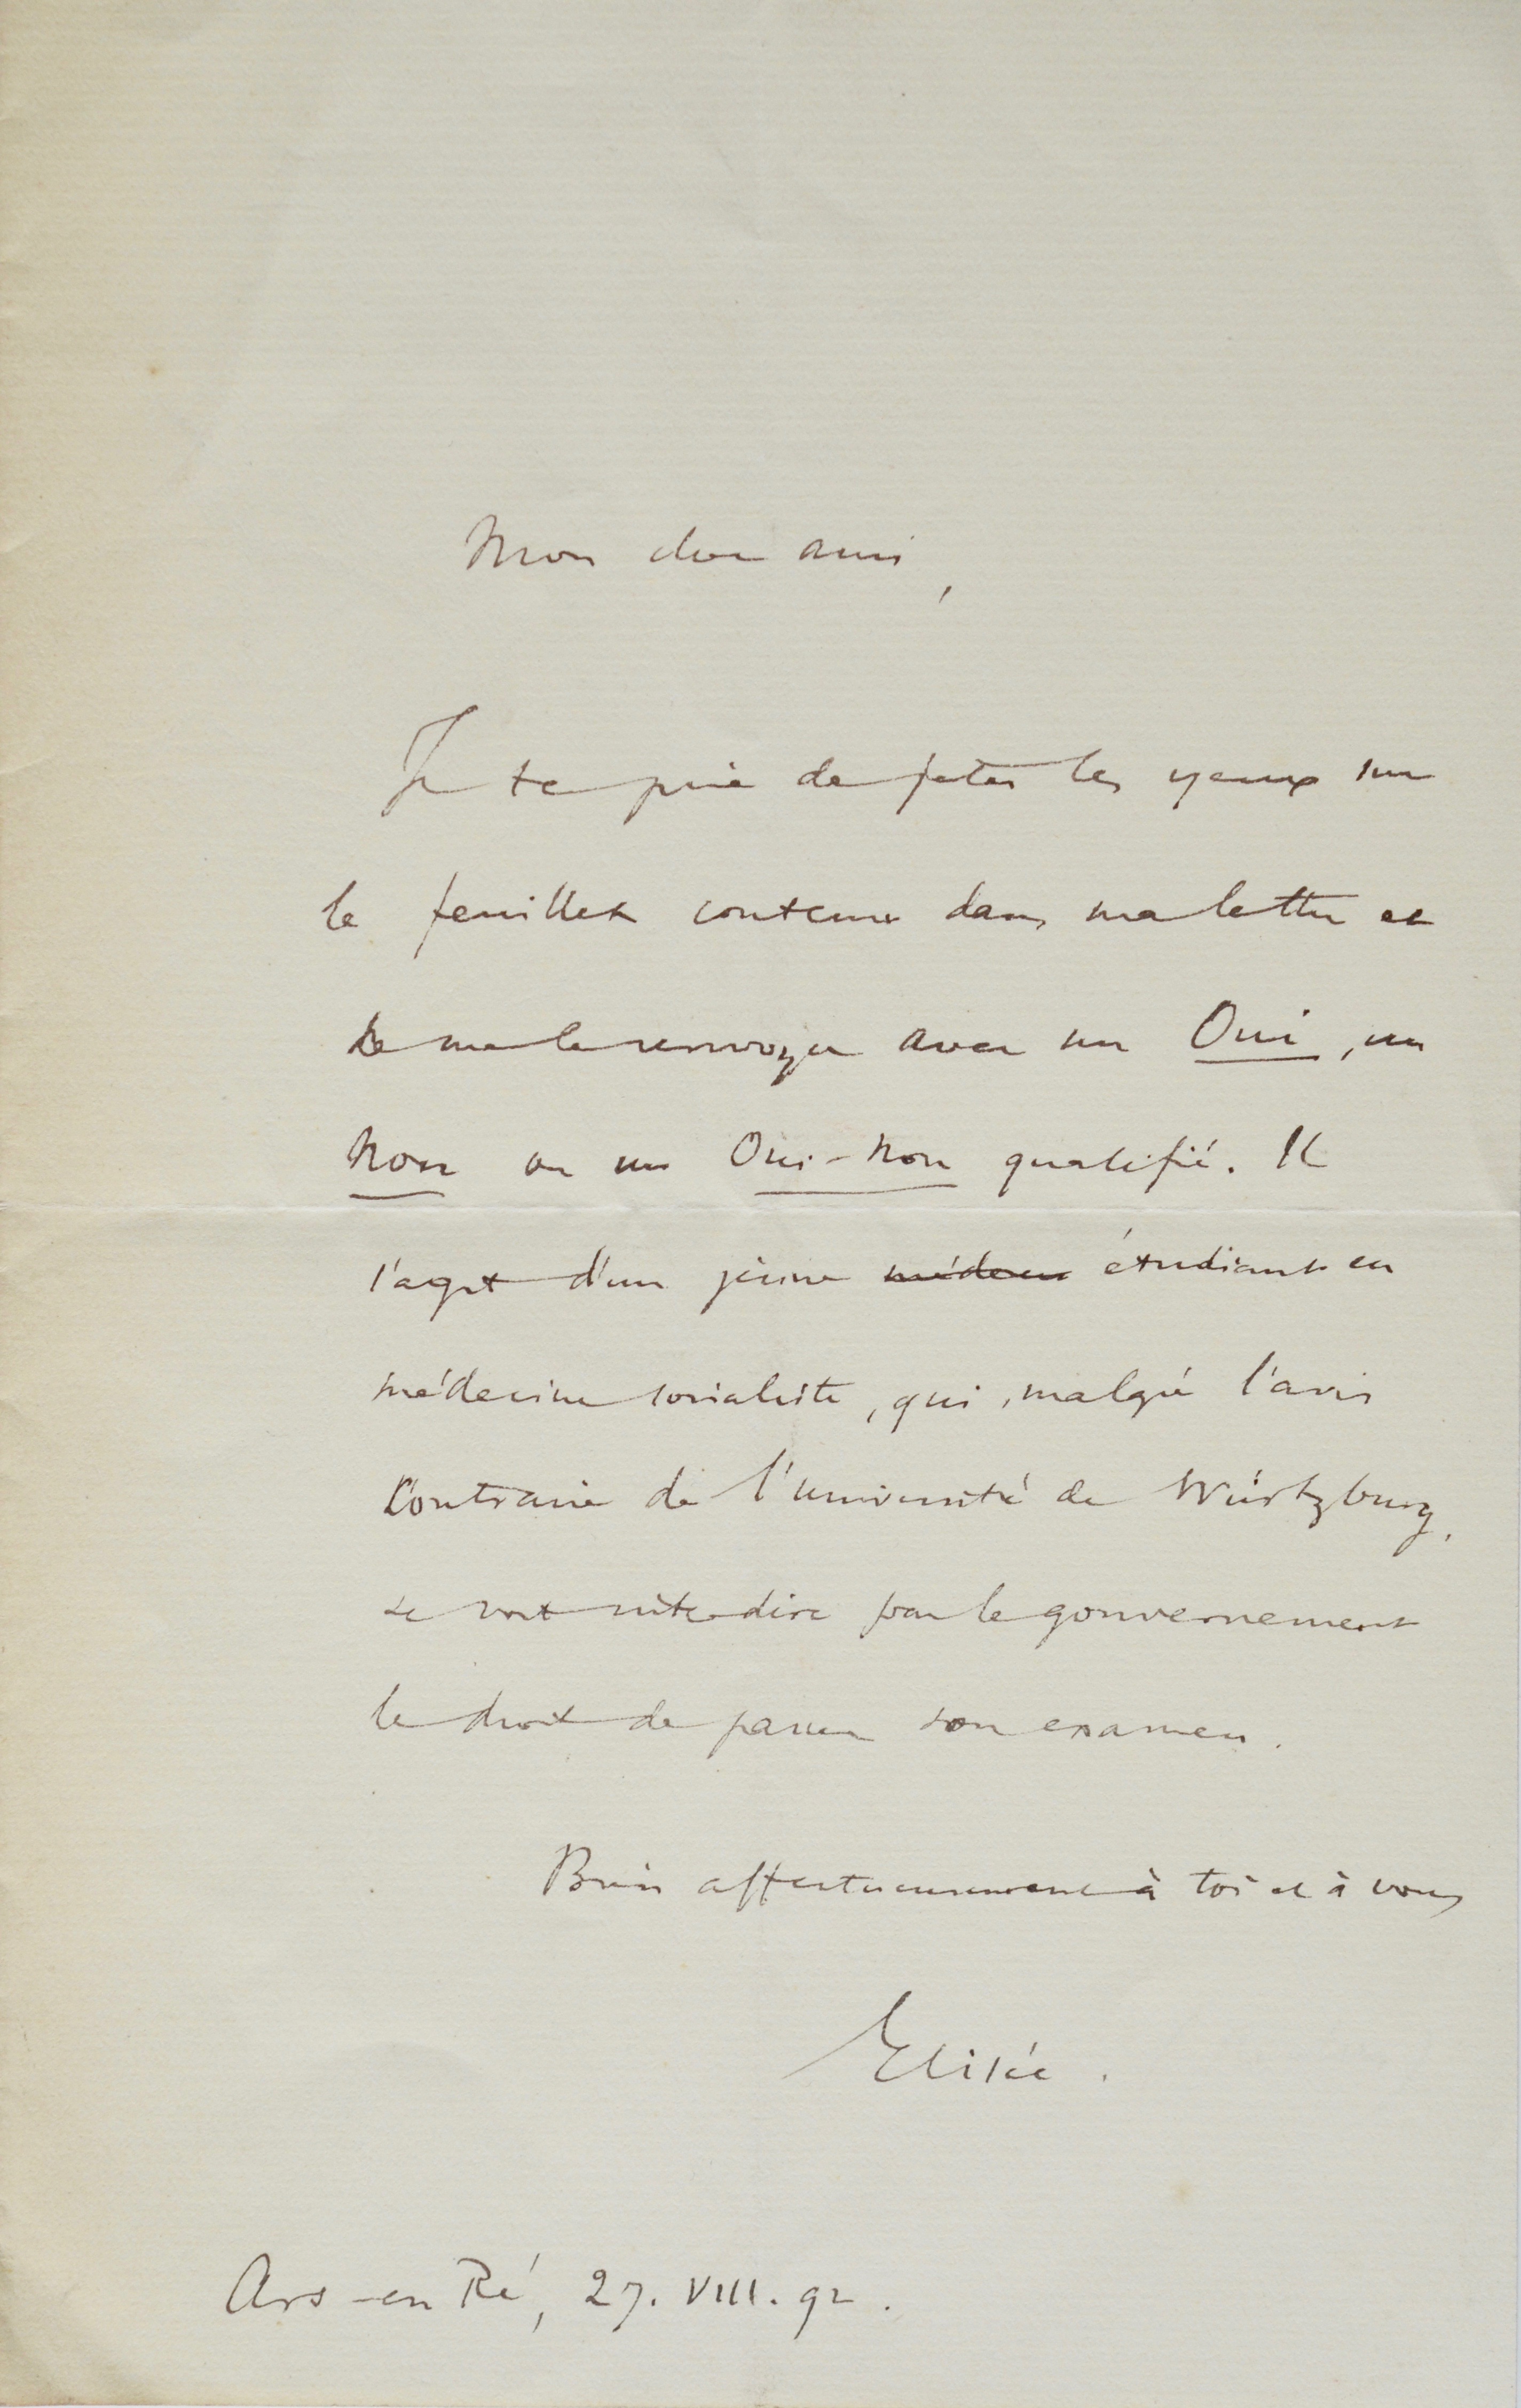 Mon cher ami,
Je te prie de jeter les yeux sur
le feuillet contenu dans ma lettre et
de me le renvoyer avec un Oui, un
Non ou un Oui-Non qualifié. Il
s'agit d'un jeune médecin étudiant en
médecine socialiste, qui, malgré l'avis
contraire de l'université de Würtzburg,
se voit interdire par le gouvernement
le droit de passer son examen.
Bien affectueusement à toi et à vous
Elisée.
Ars-en Ré, 27. VIII. 92.